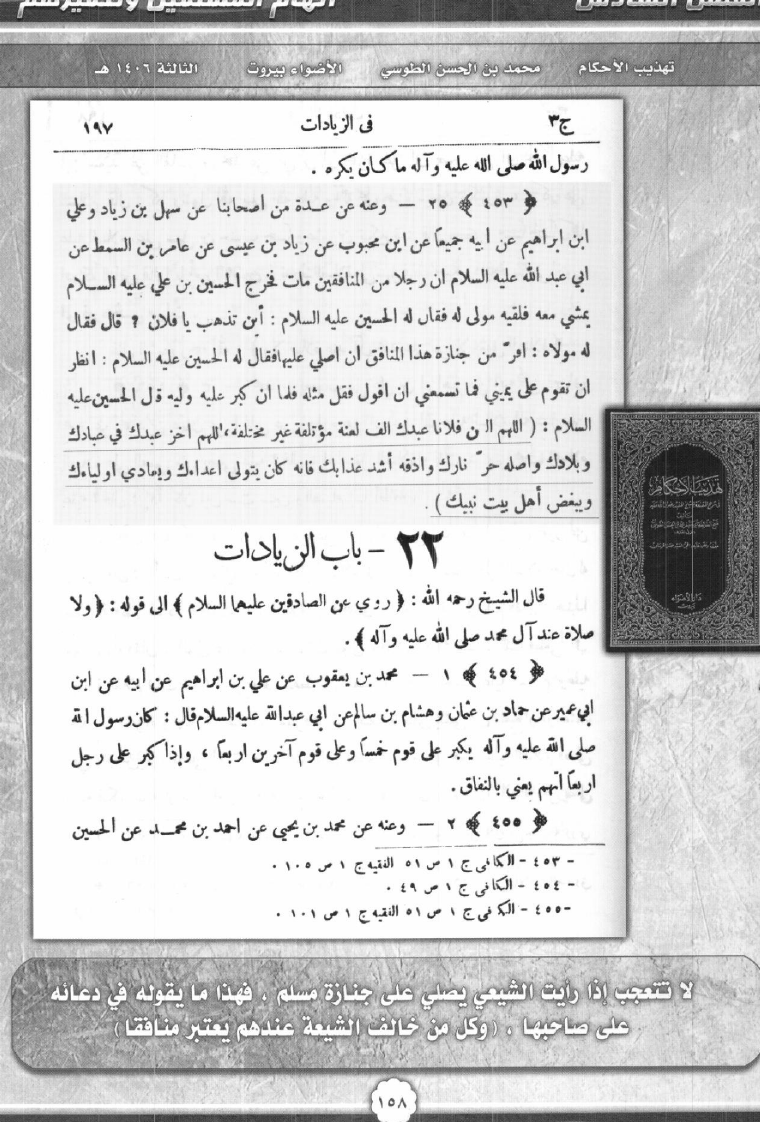 اتهام المسلمين وتكفيرهم
تهذيب الأحكام محمد بن الحسن الطوسي الأضواء بيروت الثالثة ١٤٠٦ هـ
ج٣ في الزيادات ١٩٧
رسول الله صلى الله عليه وآله ما كان يكره .
﴿ ٤٥٣ ﴾ ٢٥ — وعنه عن عدة من أصحابنا عن سهل بن زياد وعلي
ابن ابراهيم عن أبيه جميعاً عن ابن محبوب عن زياد بن عيسى عن عامر بن السمط عن
ابي عبد الله عليه السلام ان رجلا من المنافقين مات فخرج الحسين بن علي عليه السلام
يمشي معه فلقيه مولى له فقال له الحسين عليه السلام : أين تذهب يا فلان ؟ قال فقال
له مولاه : افرّ من جنازة هذا المنافق ان اصلي عليها فقال له الحسين عليه السلام : انظر
ان تقوم على يميني فما تسمعني ان اقول فقل مثله فلما ان كبر عليه وليه قال الحسين عليه
السلام : ( اللهم العن فلانا عبدك الف لعنة مؤتلفة غير مختلفة، اللهم اخز عبدك في عبادك
وبلادك واصله حرّ نارك واذقه أشد عذابك فانه كان يتولى اعداءك ويعادي اولياءك
ويبغض أهل بيت نبيك ) .
٢٢ - باب الزيادات
قال الشيخ رحمه الله : ﴿ روي عن الصادقين عليهما السلام ﴾ الى قوله : ﴿ ولا
صلاة عند آل محمد صلى الله عليه وآله ﴾ .
﴿ ٤٥٤ ﴾ ١ — محمد بن يعقوب عن علي بن ابراهيم عن ابيه عن ابن
ابي عمير عن حماد بن عثمان وهشام بن سالم عن ابي عبدالله عليه السلام قال : كان رسول الله
صلى الله عليه وآله يكبر على قوم خمساً وعلى قوم آخرين اربعاً ، وإذا كبر على رجل
اربعاً اتهم يعني بالنفاق .
﴿ ٤٥٥ ﴾ ٢ — وعنه عن محمد بن يحيى عن احمد بن محمد عن الحسين
- ٤٥٣ - الكافي ج ١ ص ٥١ الفقيه ج ١ ص ١٠٥ .
- ٤٥٤ - الكافي ج ١ ص ٤٩ .
- ٤٥٥ - الكافي ج ١ ص ٥١ الفقيه ج ١ ص ١٠١ .
تهذيب الأحكام
لا تتعجب إذا رأيت الشيعي يصلي على جنازة مسلم ، فهذا ما يقوله في دعائه
على صاحبها ، (وكل من خالف الشيعة عندهم يعتبر منافقا)
١٥٨